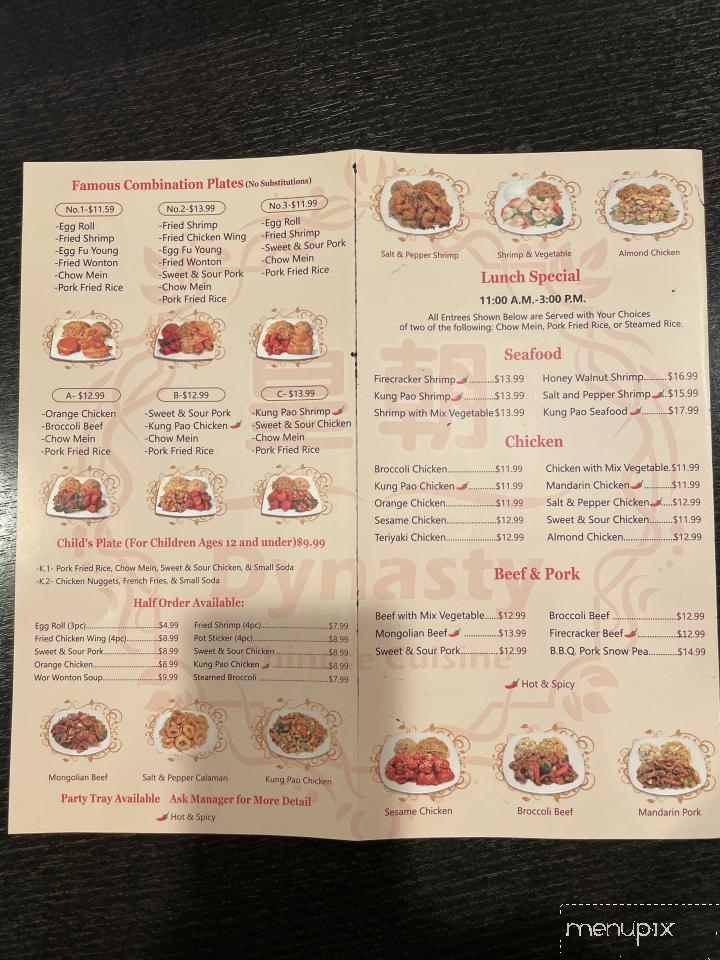 Famous Combination Plates (No Substitutions)
No.1-$11.59
-Egg Roll
-Fried Shrimp
-Egg Fu Young
-Fried Wonton
-Chow Mein
-Pork Fried Rice
No.2-$13.99
-Fried Shrimp
-Fried Chicken Wing
-Egg Fu Young
-Fried Wonton
-Sweet & Sour Pork
-Chow Mein
-Pork Fried Rice
No.3-$11.99
-Egg Roll
-Fried Shrimp
-Sweet & Sour Pork
-Chow Mein
-Pork Fried Rice
A- $12.99
-Orange Chicken
-Broccoli Beef
-Chow Mein
-Pork Fried Rice
B-$12.99
-Sweet & Sour Pork
-Kung Pao Chicken
-Chow Mein
-Pork Fried Rice
C- $13.99
-Kung Pao Shrimp
-Sweet & Sour Chicken
-Chow Mein
-Pork Fried Rice
Child's Plate (For Children Ages 12 and under)$9.99
-K.1- Pork Fried Rice, Chow Mein, Sweet & Sour Chicken, & Small Soda
-K.2- Chicken Nuggets, French Fries, & Small Soda
Half Order Available:
Egg Roll (3pc)...$4.99
Fried Chicken Wing (4pc)...$8.99
Sweet & Sour Pork...$8.99
Orange Chicken...$8.99
Wor Wonton Soup...$9.99
Fried Shrimp (4pc)...$7.99
Pot Sticker (4pc)...$8.99
Sweet & Sour Chicken...$8.99
Kung Pao Chicken...$8.99
Steamed Broccoli...$7.99
Mongolian Beef
Salt & Pepper Calamari
Kung Pao Chicken
Party Tray Available Ask Manager for More Detail
Hot & Spicy
Salt & Pepper Shrimp
Shrimp & Vegetable
Almond Chicken
Lunch Special
11:00 A.M.-3:00 P.M.
All Entrees Shown Below are Served with Your Choices
of two of the following: Chow Mein, Pork Fried Rice, or Steamed Rice.
皇朝
Seafood
Firecracker Shrimp...$13.99
Kung Pao Shrimp...$13.99
Shrimp with Mix Vegetable $13.99
Honey Walnut Shrimp...$16.99
Salt and Pepper Shrimp...$15.99
Kung Pao Seafood...$17.99
Chicken
Broccoli Chicken...$11.99
Kung Pao Chicken...$11.99
Orange Chicken...$11.99
Sesame Chicken...$12.99
Teriyaki Chicken...$12.99
Chicken with Mix Vegetable.$11.99
Mandarin Chicken...$11.99
Salt & Pepper Chicken...$12.99
Sweet & Sour Chicken...$11.99
Almond Chicken...$12.99
Dynasty
Chinese Cuisine
Beef & Pork
Beef with Mix Vegetable...$12.99
Mongolian Beef...$13.99
Sweet & Sour Pork...$12.99
Broccoli Beef...$12.99
Firecracker Beef...$12.99
B.B.Q. Pork Snow Pea...$14.99
Hot & Spicy
Sesame Chicken
Broccoli Beef
Mandarin Pork
menupix